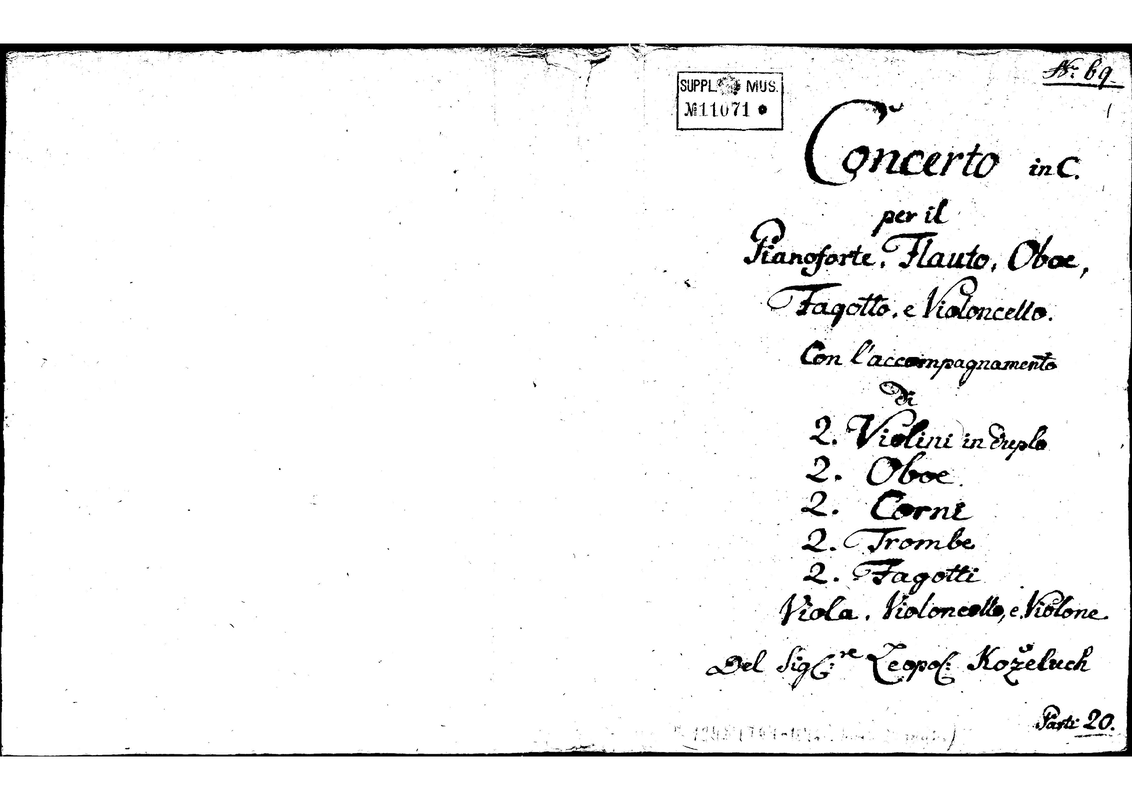 Nr: 69.
SUPPL. MUS.
№ 11071
Concerto in C.
per il
Pianoforte, Flauto, Oboe,
Fagotto, e Violoncello.
Con l'accompagnamento
di
2. Violini in duplo
2. Oboe
2. Corni
2. Trombe
2. Fagotti
Viola, Violoncello, e Violone
Del Sig:re Leopol: Koželuch
Parti 20.